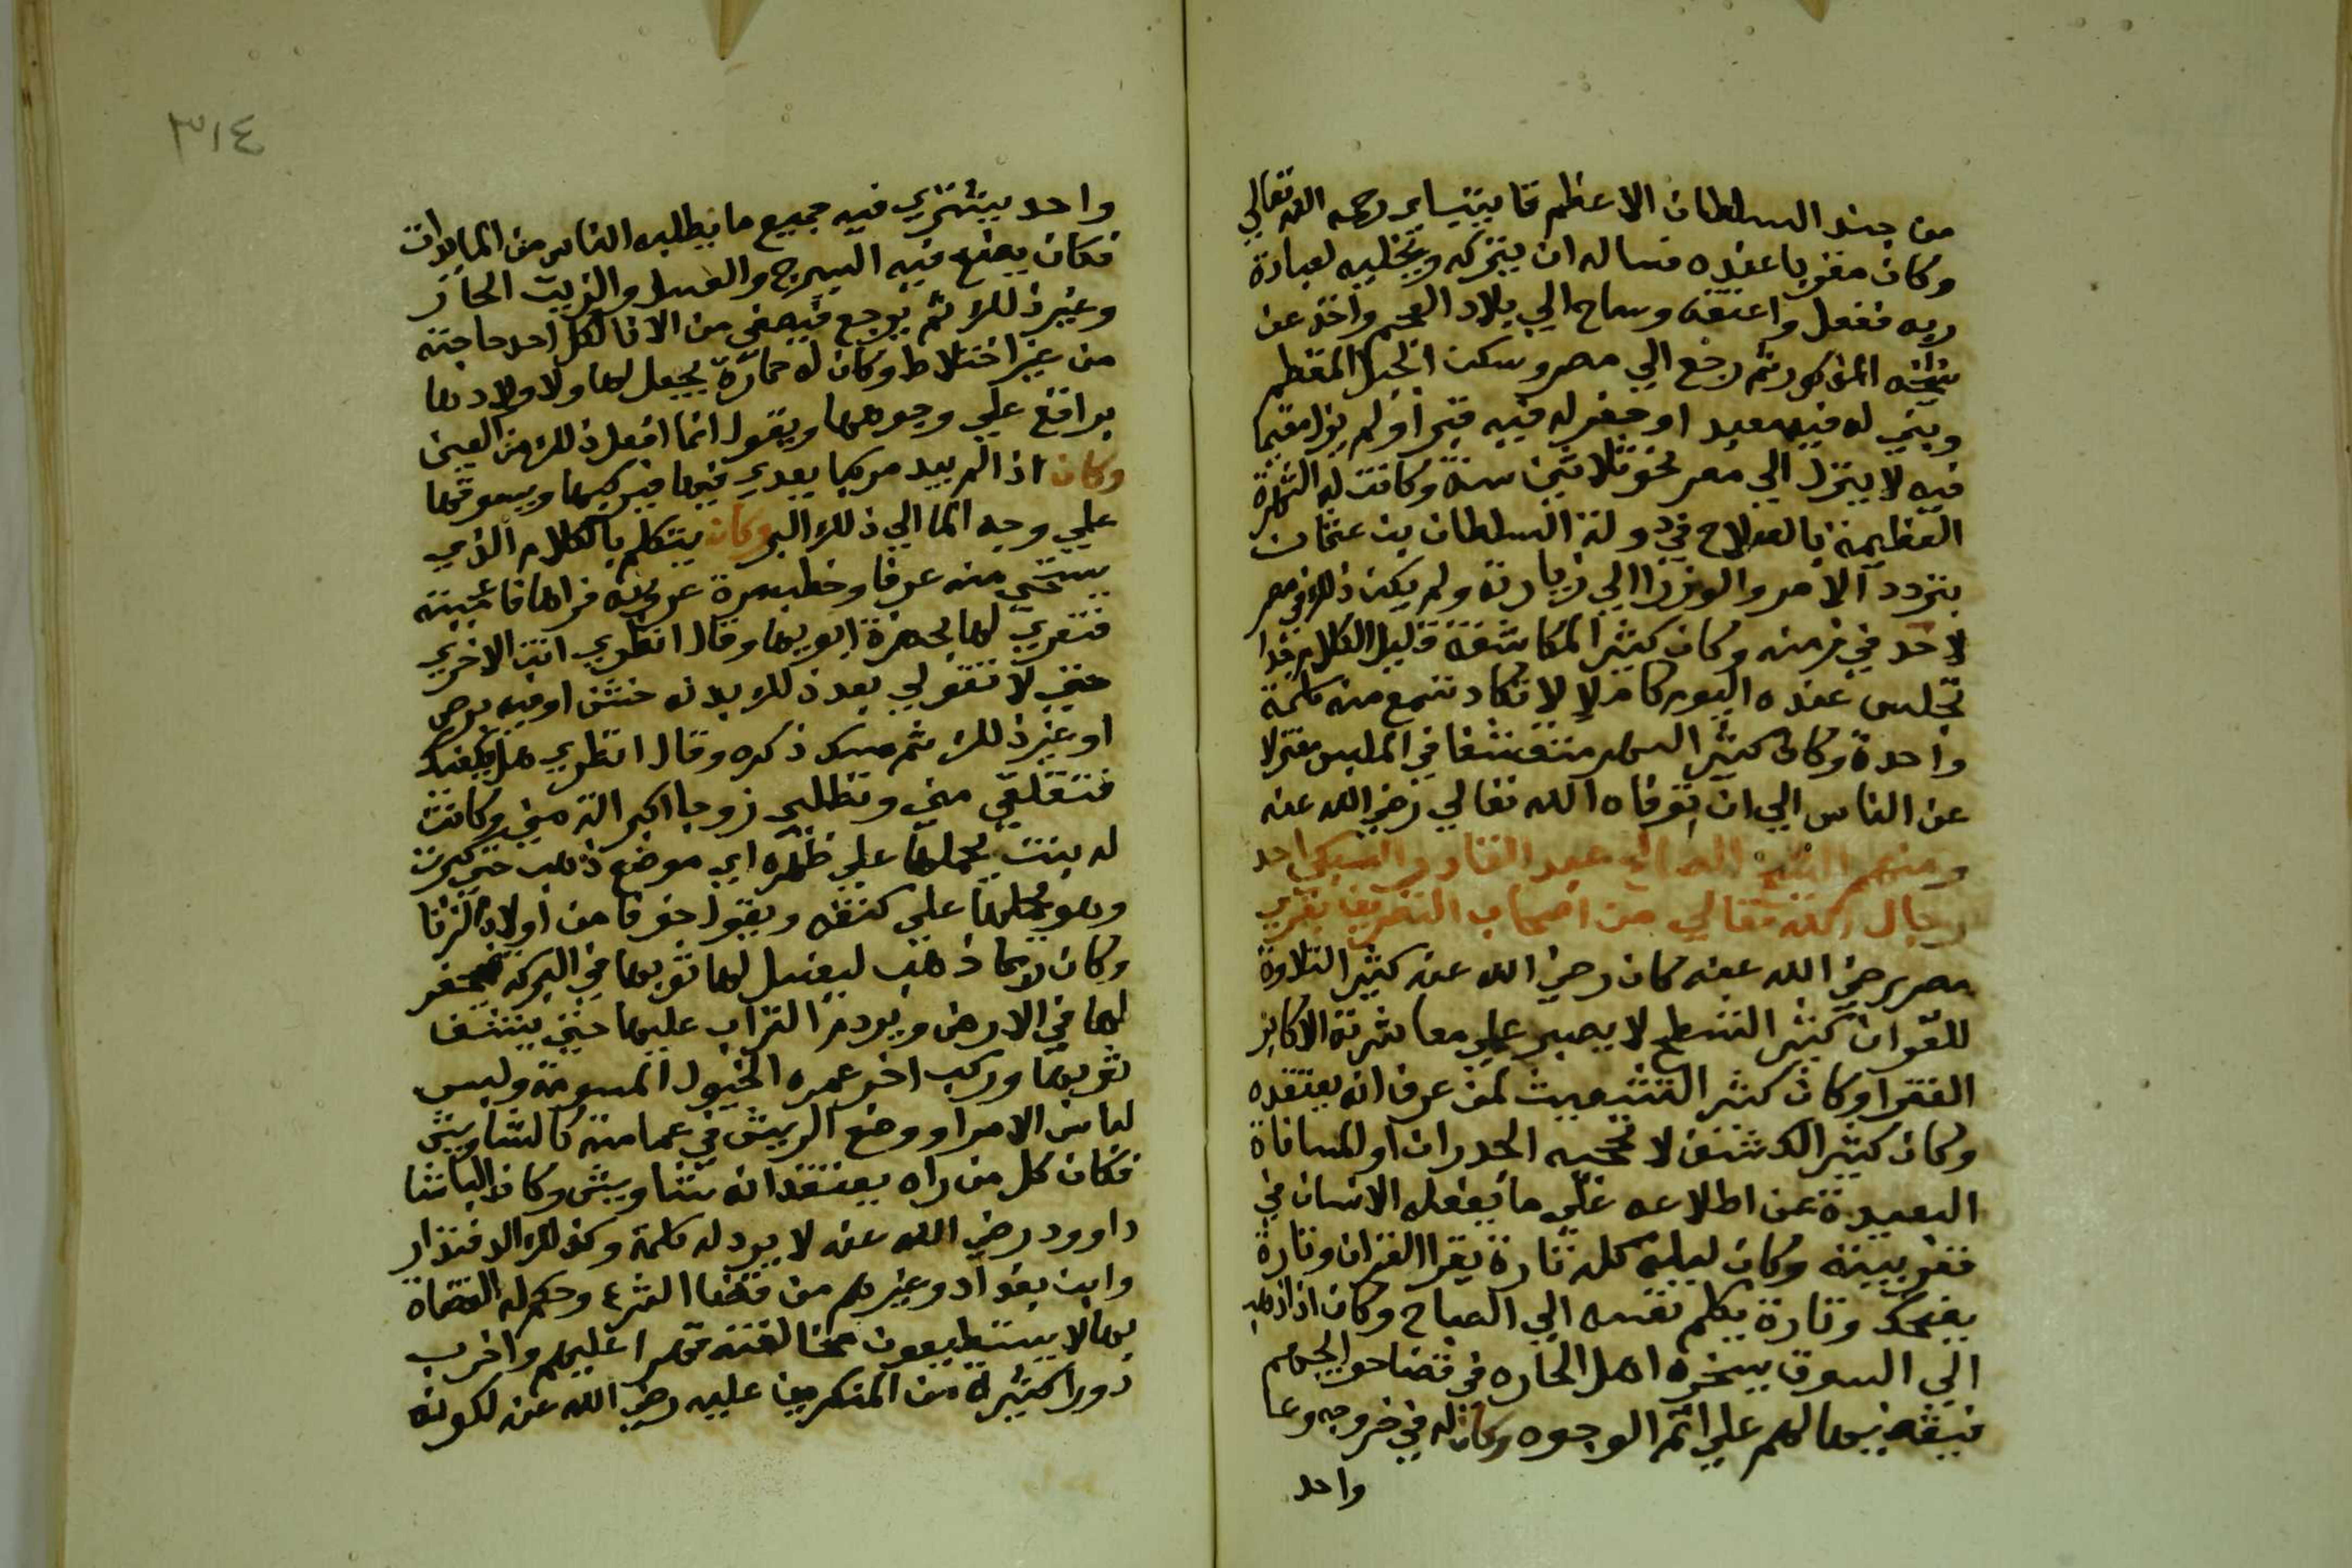 من جند السلطان الاعظم قايتباى رحمه الله تعالي
وكان مقربا عنده فساله ان يتركه ويخليه لعبادة
ربه ففعل واعتقه وساح الي بلاد العجم واخذ عن
شيخه المذكور ثم رجع الي مصر وسكن الجبل المقطم
وبني له فيه معبد او حفر له فيه قبرا ولم يزل مقيما
فيه لا ينزل الي مصر نحو ثلاثين سنة وكانت له الشهرة
العظيمة بالصلاح في دولة السلطان بن عثمان
بتردد الامر والوزرا الي زيارته ولم يكن ذلك في مصر
لاحد في زمنه وكان كثير المكاشفة قليل الكلام جدا
تجلس عنده اليوم كاملا لا تكاد تسمع منه كلمة
واحدة وكان كثير السهر متقشفا في الملبس معتزلا
عن الناس الي ان توفاه الله تعالي رضي الله عنه
ومنهم الشيخ الصالح عبد القادر السبكي احد
رجال الله تعالي من اصحاب التصريف بقري
مصر رضي الله عنه كان رضي الله عنه كثير التلاوة
للقران كثير الشطح لا يصبر علي معاشرته الا كابر
الفقرا وكان كثير التشعيث لمن عرف انه يعتقده
وكان كثير الكشف لا تحجبه الجدران او المسافاة
البعيدة عن اطلاعه علي ما يفعله الانسان في
قعر بيته وكان ليله كله تارة يقرا القران وتارة
يضحك وتارة يكلم نفسه الي الصباح وكان اذا ذهب
الي السوق يسخره اهل الحاره في قضا حوايجهم
فيقضيها لهم علي اتم الوجوه وكان له في خروجه وعا
واحد
٣١٤
واحد يشتري فيه جميع ما يطلبه الناس من المايعات
فكان يضع فيه السيرج والعسل والزيت الحار
وغير ذلك ثم يرجع فيصفي من الانا لكل احد حاجته
من غير اختلاط وكان له حمارة يجعل لها ولاولادها
براقع علي وجوهها ويقول انما افعل ذلك من العين
وكان اذا لم يجد مركبا يعدي فيها فيركبها ويسوقها
علي وجه الما الي ذلك البر وكان يتكلم بالكلام الذي
يستحي منه عرفا وخطب مرة عروسه فراها فاعجبته
فتعري لها بحضرة ابويها وقال انظري انت الاخري
حتي لا تقولي بعد ذلك بدنه خشن او فيه برص
او غير ذلك ثم مسك ذكره وقال انظري هل يكفيك
فتتقلقي مني وتطلبي زوجا اكبر الة مني وكانت
له بنت يحملها علي ظهره اي موضع ذهب حتي كبرت
وهو يحملها علي كتفه ويقول خوفا من اولاد الزنا
وكان لما ذهب ليغسل لها ثوبها في البركة يحفر
لها في الارض ويردم التراب عليها حتي ينشف
ثوبها وركب اخر عمره الخيول المسومة ولبس
لباس الامرا ووضع الريش في عمامته كالشاويش
فكان كل من راه يعتقد انه شاويش وكان الباشا
داوود رضي الله عنه لا يرد له كلمة وكذلك الدفتدار
وابن بغداد وغيرهم من قضا الشرع وحكم له القضاة
بها لا يستطيعون مخالفته قهرا عليهم واخرب
دورا كثيرة من المنكرين عليه رضي الله عنه لكونه